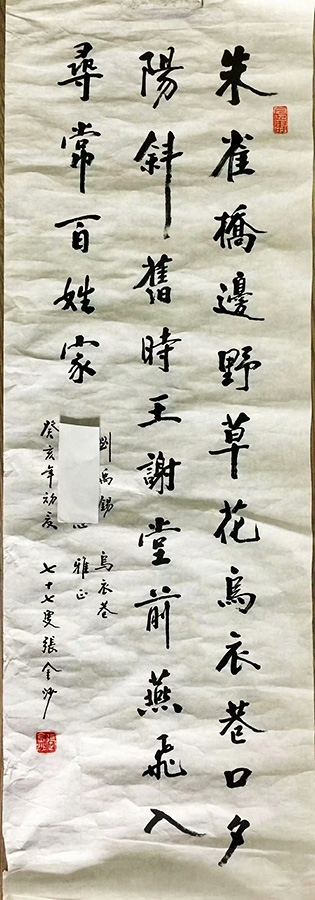 朱雀橋邊野草花烏衣巷口夕
陽斜舊時王謝堂前燕飛入
尋常百姓家
劉禹錫 烏衣巷
雅正
癸亥年初夏 七十七叟張金沙